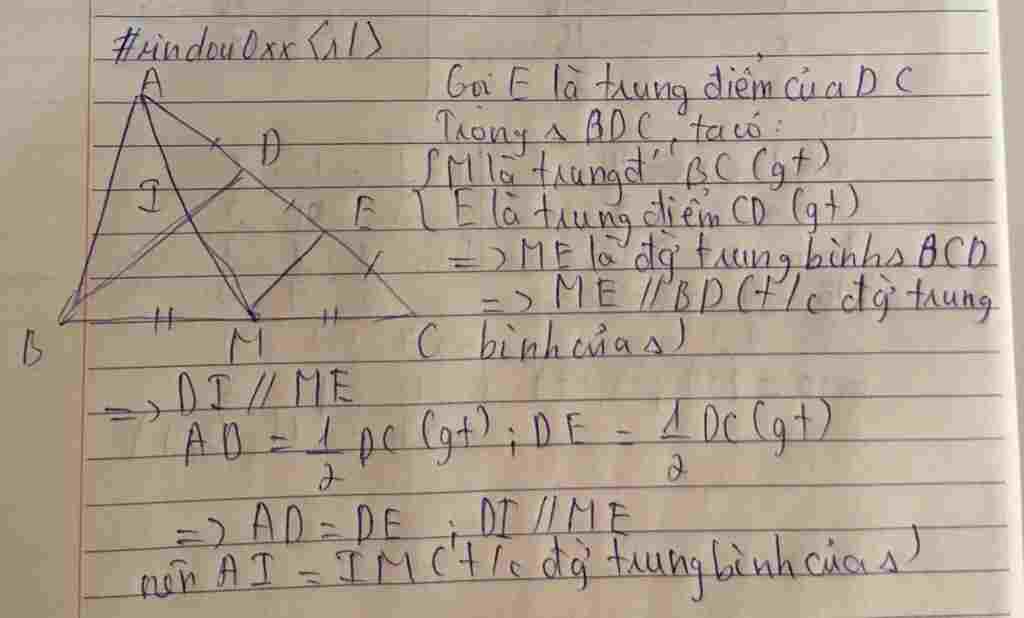 #rindou0xx
A
Gọi E là trung điểm của DC
D
Trong Δ BDC, ta có:
I
{ M là trung đ' BC (gt)
E
{ E là trung điểm CD (gt)
=> ME là đg̀ trung bình Δ BCD
=> ME // BD (t/c đg̀ trung
B
M
C
bình của Δ)
=> DI // ME
AD = 1/2 DC (gt) ; DE = 1/2 DC (gt)
=> AD = DE ; DI // ME
nên AI = IM (t/c đg̀ trung bình của Δ)